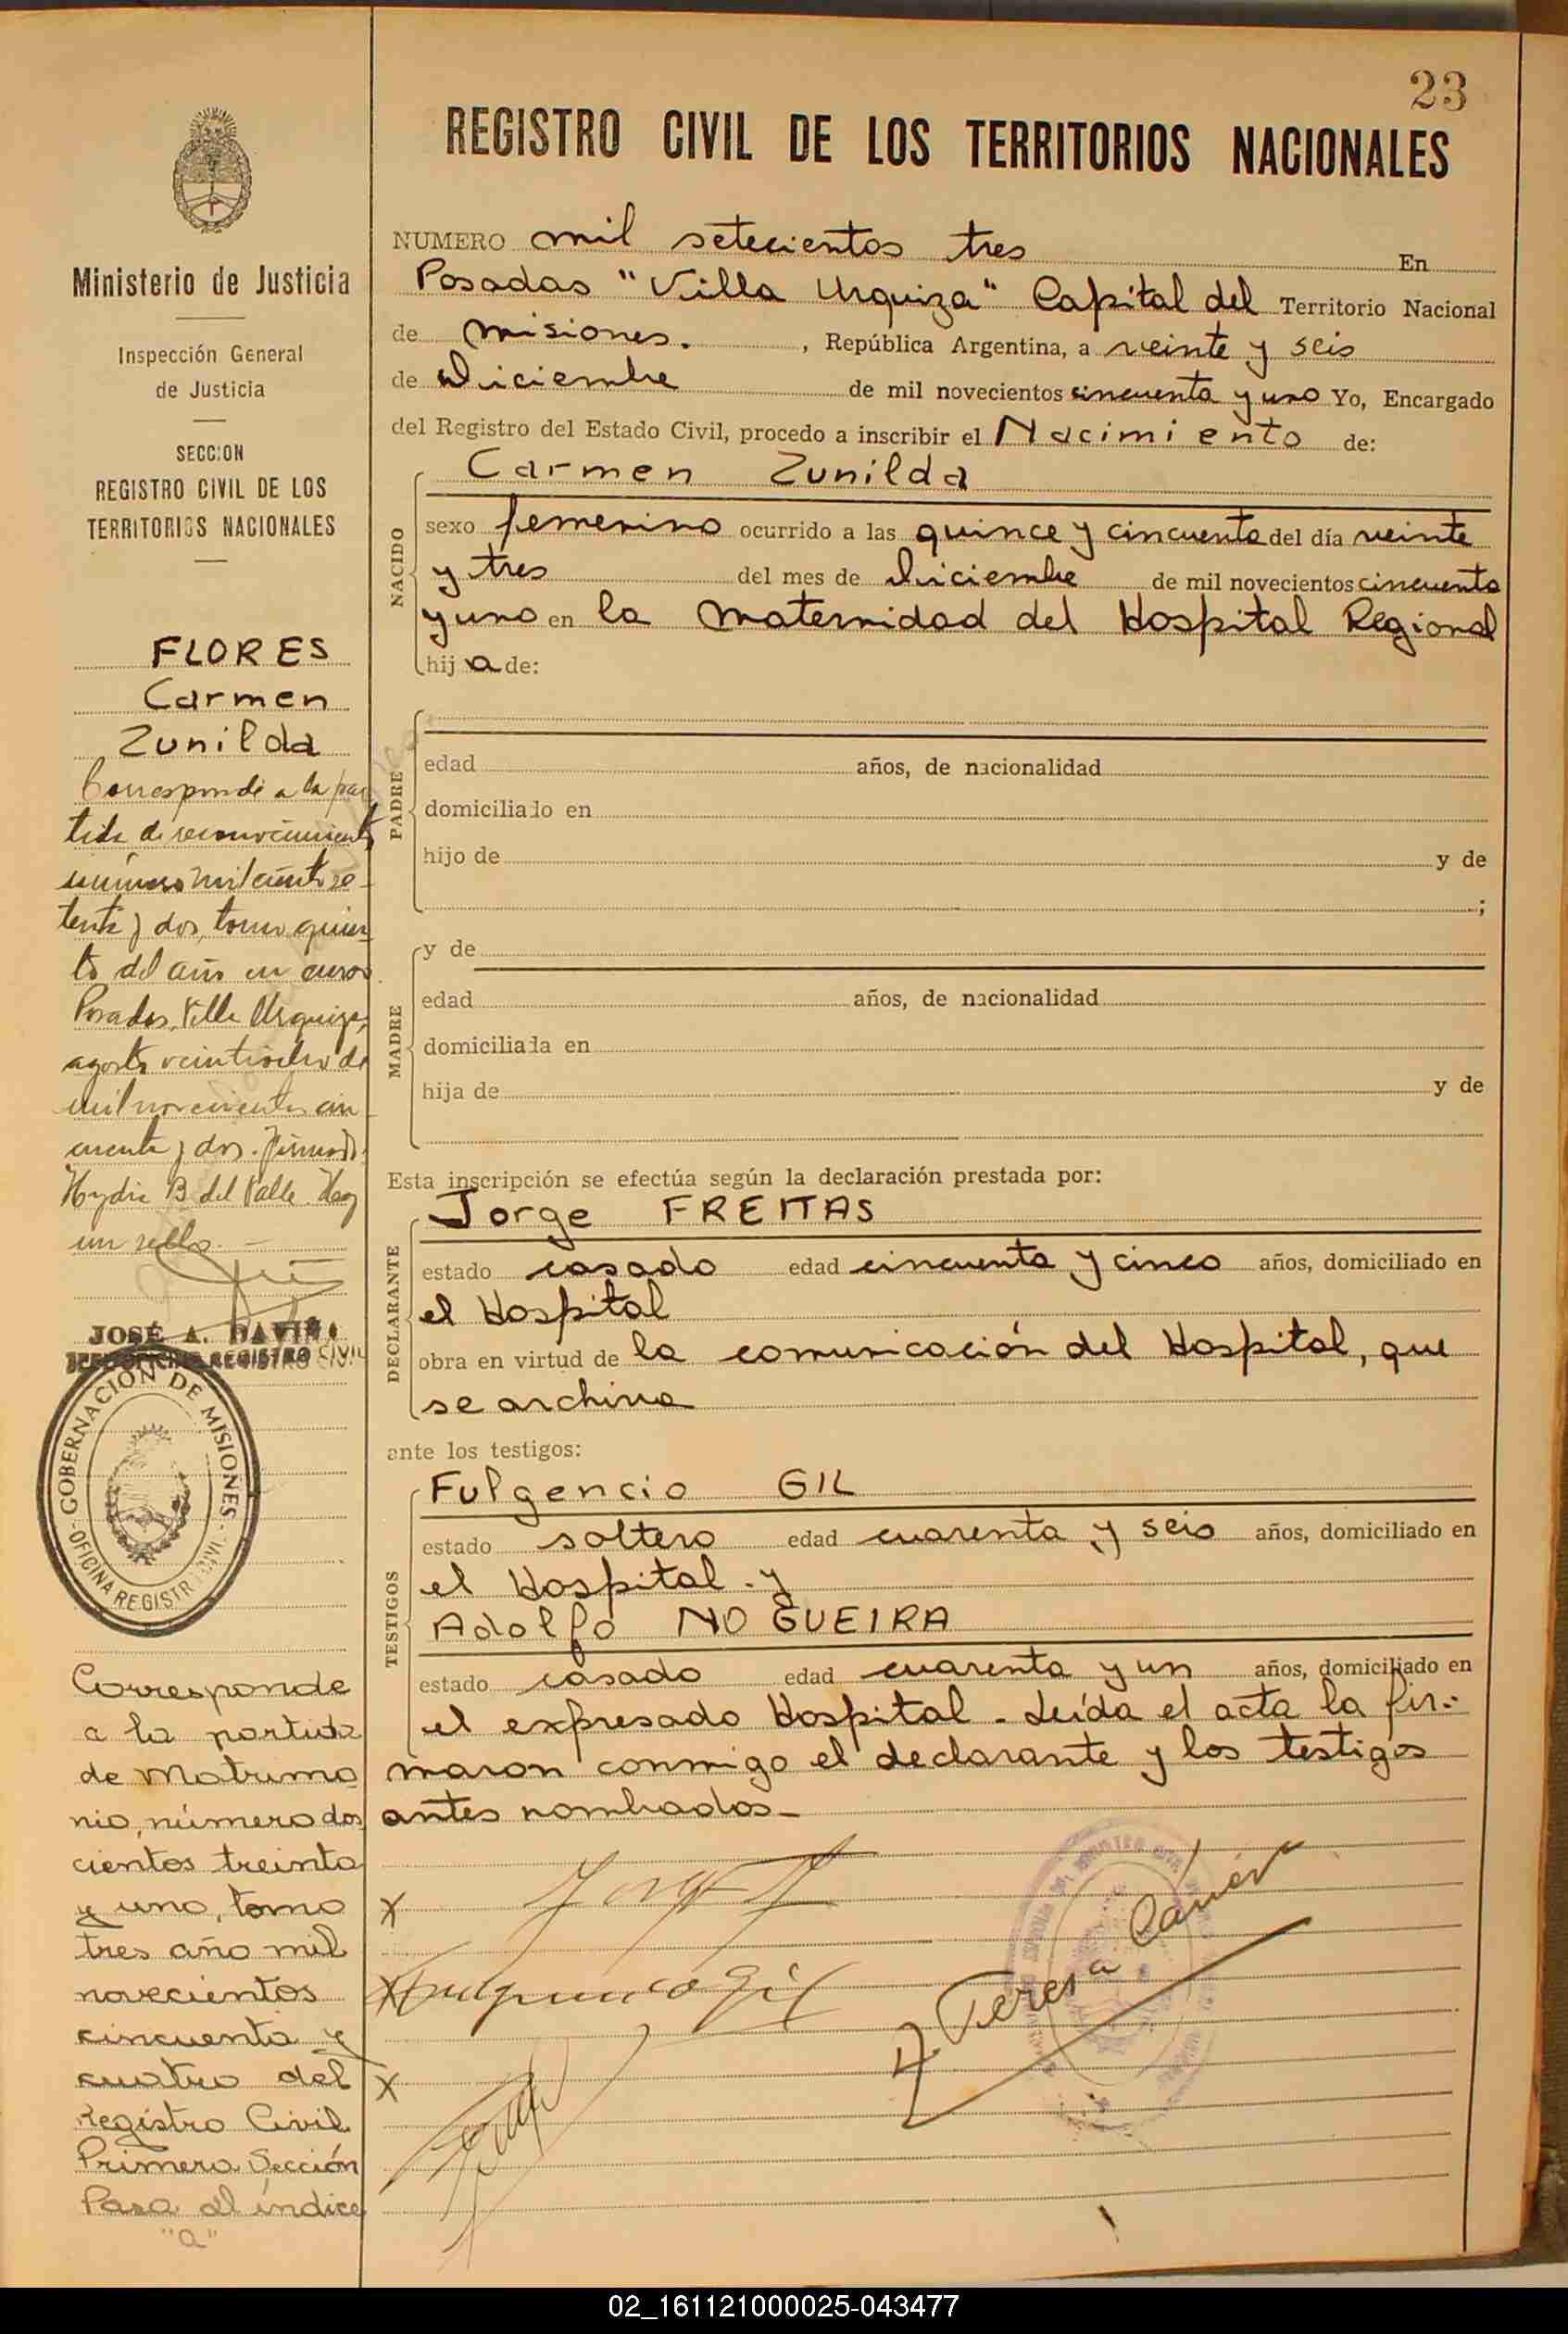 23
REGISTRO CIVIL DE LOS TERRITORIOS NACIONALES
Ministerio de Justicia
Inspección General
de Justicia
SECCION
REGISTRO CIVIL DE LOS
TERRITORIOS NACIONALES
FLORES
Carmen
Zunilda
Corresponde a la par
tida de reconocimiento
número mil ciento se-
tenta y dos, tomo quin-
to del año en curso
Posadas, Villa Urquiza,
agosto veintiocho de
mil novecientos cin
cuenta y dos. Firmado.
B. del Valle. Hay
un sello.-
JOSÉ A.
OFICINA REGISTRO CIVIL
GOBERNACION DE MISIONES
OFICINA REGISTRO CIVIL
Corresponde
a la partida
de Matrimo
nio, número dos
cientos treinta
y uno, tomo
tres año mil
novecientos
cincuenta y
cuatro del
Registro Civil
Primera Sección
Pasa al índice
"a"
NUMERO mil setecientos tres En
Posadas "Villa Urquiza" Capital del Territorio Nacional
de misiones. , República Argentina, a veinte y seis
de Diciembre de mil novecientos cincuenta y uno Yo, Encargado
del Registro del Estado Civil, procedo a inscribir el Nacimiento de:
Carmen Zunilda
NACIDO
sexo femenino ocurrido a las quince y cincuenta del día veinte
y tres del mes de Diciembre de mil novecientos cincuenta
y uno en la maternidad del Hospital Regional
hij a de:
PADRE
edad años, de nacionalidad
domiciliado en
hijo de y de
;
MADRE
y de
edad años, de nacionalidad
domiciliada en
hija de y de
Esta inscripción se efectúa según la declaración prestada por:
DECLARANTE
Jorge FREITAS
estado casado edad cincuenta y cinco años, domiciliado en
el Hospital
obra en virtud de la comunicación del Hospital, que
se archiva
ante los testigos:
TESTIGOS
Fulgencio GIL
estado soltero edad cuarenta y seis años, domiciliado en
el Hospital.y
Adolfo NOGUEIRA
estado casado edad cuarenta y un años, domiciliado en
el expresado Hospital - Leída el acta la fir-
maron conmigo el declarante y los testigos
antes nombrados-
x Jorge F
x Fulgencio Gil
x
Teresa
02_161121000025-043477